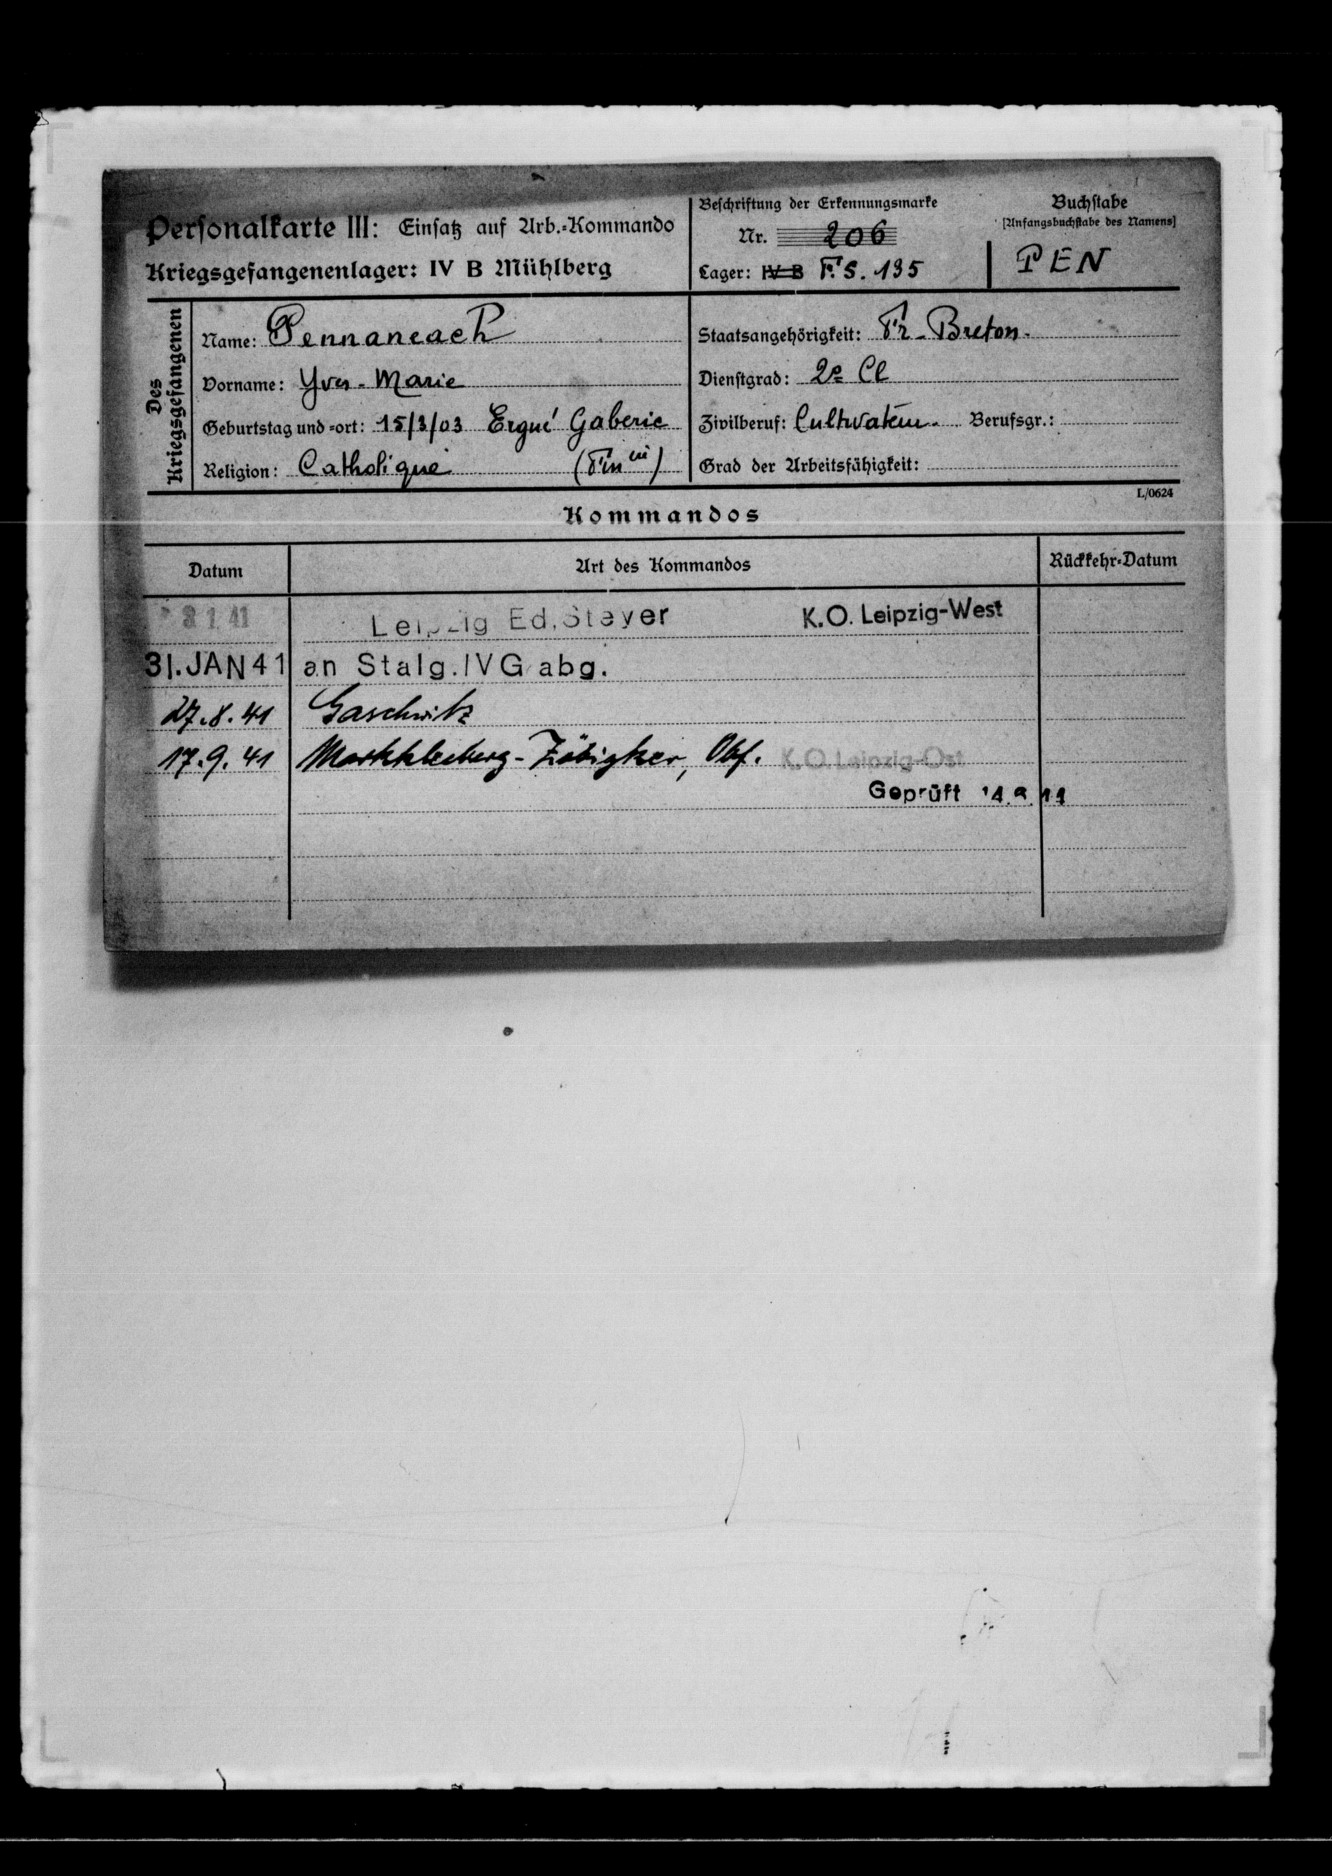 Personalkarte III: Einsatz auf Arb.-Kommando
Kriegsgefangenenlager: IV B Mühlberg
Beschriftung der Erkennungsmarke
Nr. 206
Lager: IV B F.S. 195
Buchstabe
[Anfangsbuchstabe des Namens]
PEN
Des Kriegsgefangenen
Name: Pennaneach
Vorname: Yves-Marie
Geburtstag und -ort: 15/3/03 Ergué Gaberic
Religion: Catholique (Fin)
Staatsangehörigkeit: Fr-Breton.
Dienstgrad: 2e Cl
Zivilberuf: Cultivateur. Berufsgr.:
Grad der Arbeitsfähigkeit:
L/0624
Kommandos
Datum Art des Kommandos Rückkehr-Datum
8 1. 41 Leipzig Ed. Steyer K.O. Leipzig-West
31. JAN 41 an Stalg. IVG abg.
27.8.41 Gaschwitz
17.9.41 Markkleeberg-Zöbigker, Obf. K.O. Leipzig-Ost
Geprüft